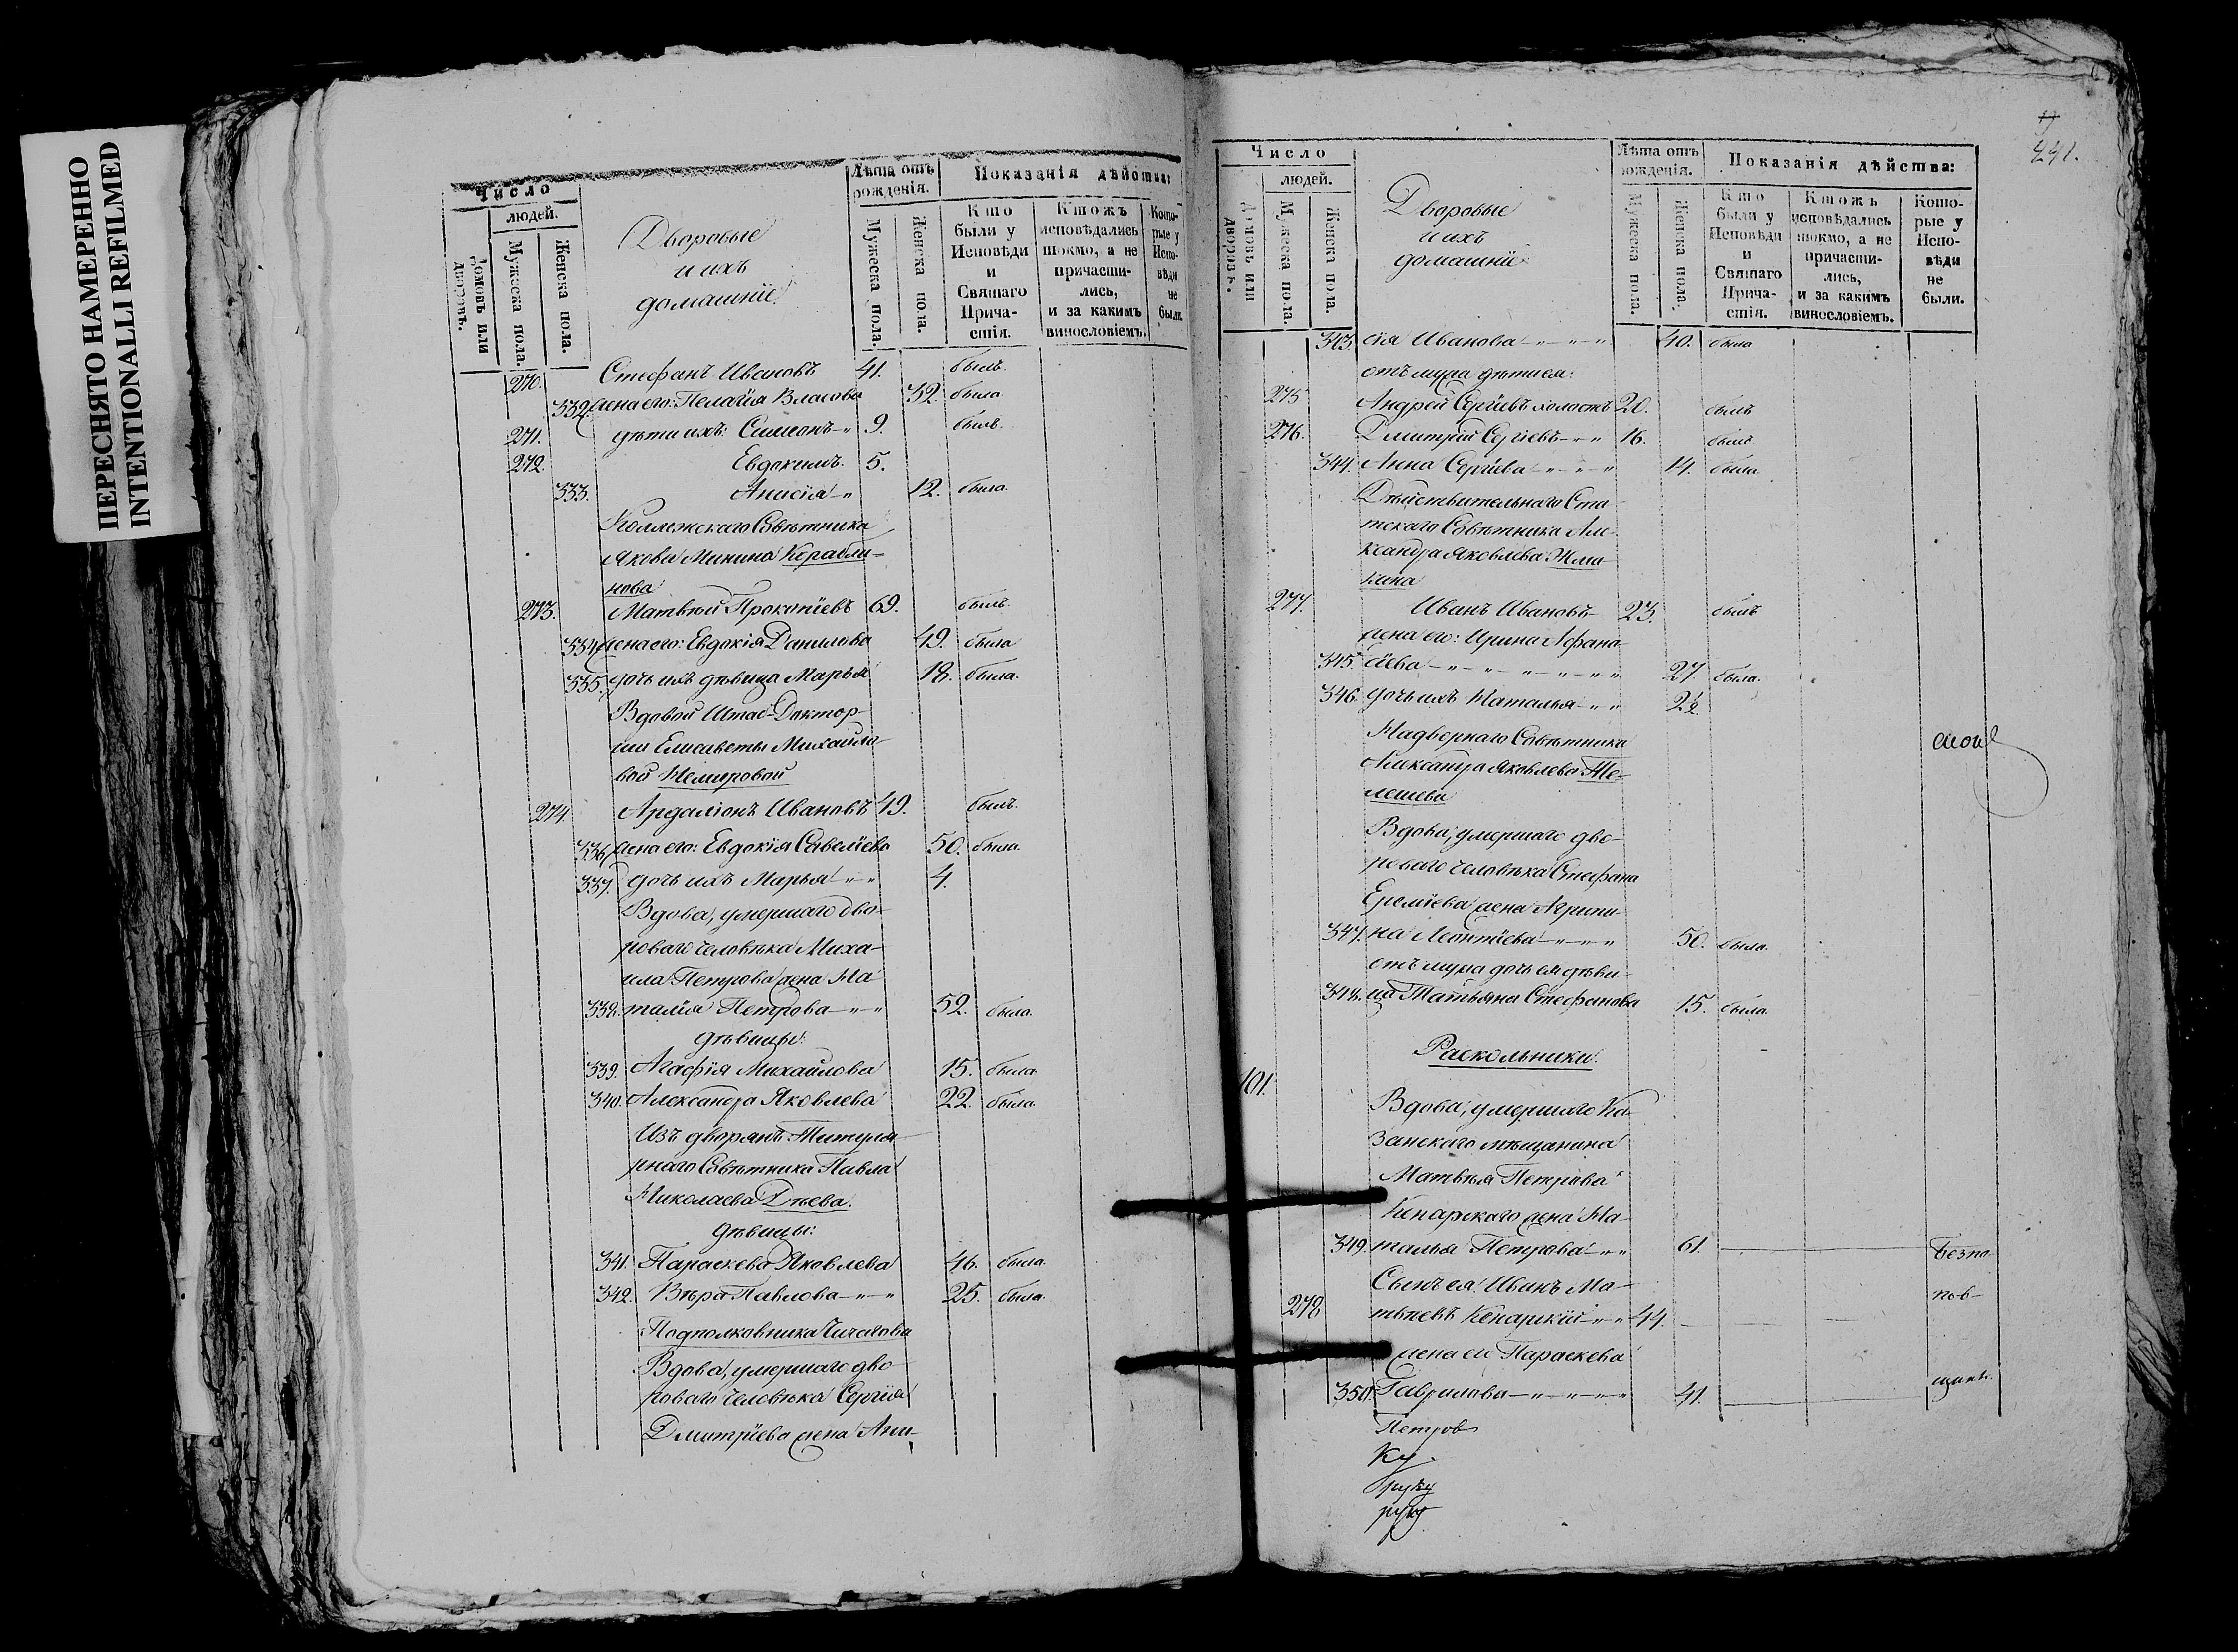 ПЕРЕСНЯТО НАМЕРЕННО
INTENTIONALLI REFILMED
Число
людей.
Домовъ или дворовъ.
Мужеска пола.
Женска пола.
Дворовые
и ихъ
домашніе
Лѣта отъ рожденія.
Мужеска пола.
Женска пола.
Показанія дѣйства:
Кто были у Исповѣди и Святаго Причастія.
Ктожъ исповѣдались токмо, а не причастились, и за какимъ винословіемъ.
Которые у Исповѣди не были.
270. Стефанъ Ивановъ 41. былъ.
332. жена его: Пелагія Власова 32. была
271. дѣти ихъ: Симеонъ 9. былъ.
272. Евдокимъ. 5.
333. Анисія 12. была.
Коллежскаго Совѣтника
Якова Минина Корабли-
нова
273. Матвѣй Прокопіевъ 69. былъ.
334. жена его: Евдокія Данилова 49. была
335. дочь ихъ дѣвица Марья 18. была.
Вдовой Штаб-Доктор-
ши Елисаветы Михайло-
вой
274. Ардаліонъ Ивановъ 49. былъ.
336. жена его: Евдокія Савеліева 50. была.
337. дочь ихъ Марья 4.
Вдова, умершаго дво-
роваго человѣка Миха-
ила Петрова жена На
338. талія Петрова 52. была.
дѣвицы:
339. Агафія Михайлова 15. была
340. Александра Яковлева 22. была.
Изъ дворянъ Титуля-
рнаго Совѣтника Павла
Николаева Дѣева.
дѣвицы:
341. Параскева Яковлева 46. была.
342. Вѣра Павлова 25. была.
Подполковника Чичагова
Вдова, умершаго дво-
роваго человѣка Сергія
Дмитріева жена Ани-
241.
Число
людей.
Домовъ или дворовъ.
Мужеска пола.
Женска пола.
Дворовые
и ихъ
домашніе
Лѣта отъ рожденія.
Мужеска пола.
Женска пола.
Показанія дѣйства:
Кто были у Исповѣди и Святаго Причастія.
Ктожъ исповѣдались токмо, а не причастились, и за какимъ винословіемъ.
Которые у Исповѣди не были.
343 сія Иванова 40. была
отъ мужа дѣтися:
275 Андрей Сергіевъ холостъ 20. былъ
276. Дмитрій Сергіевъ 16. былъ
344. Анна Сергіева 14. была.
Дѣйствительнаго Ста-
тскаго Совѣтника Але-
ксандра Яковлева Жма-
кина
277. Иванъ Ивановъ 23. былъ
жена его: Ирина Афана-
345. сіева 27. была.
346. дочь ихъ Наталья 2½.
Надворнаго Совѣтника
Александра Яковлева Те-
лешева
Вдова, умершаго дво-
роваго человѣка Стефана
Ереміева жена Агрипи-
347. на Леонтіева 50. была.
отъ мужа дочь ея дѣви-
348. ца Татьяна Стефанова 15. была.
Раскольники.
101.
Вдова, умершаго Ка-
занскаго мѣщанина
Матвѣя Петрова
Кенарскаго жена На-
349. талья Петрова 61. Безпо-
Сынъ ея Иванъ Ма- пов-
278 твѣевъ Кенарскій 44.
жена ег Параскева
350. Гаврилова 41. щинъ.
Петров
Ку
руку
руку